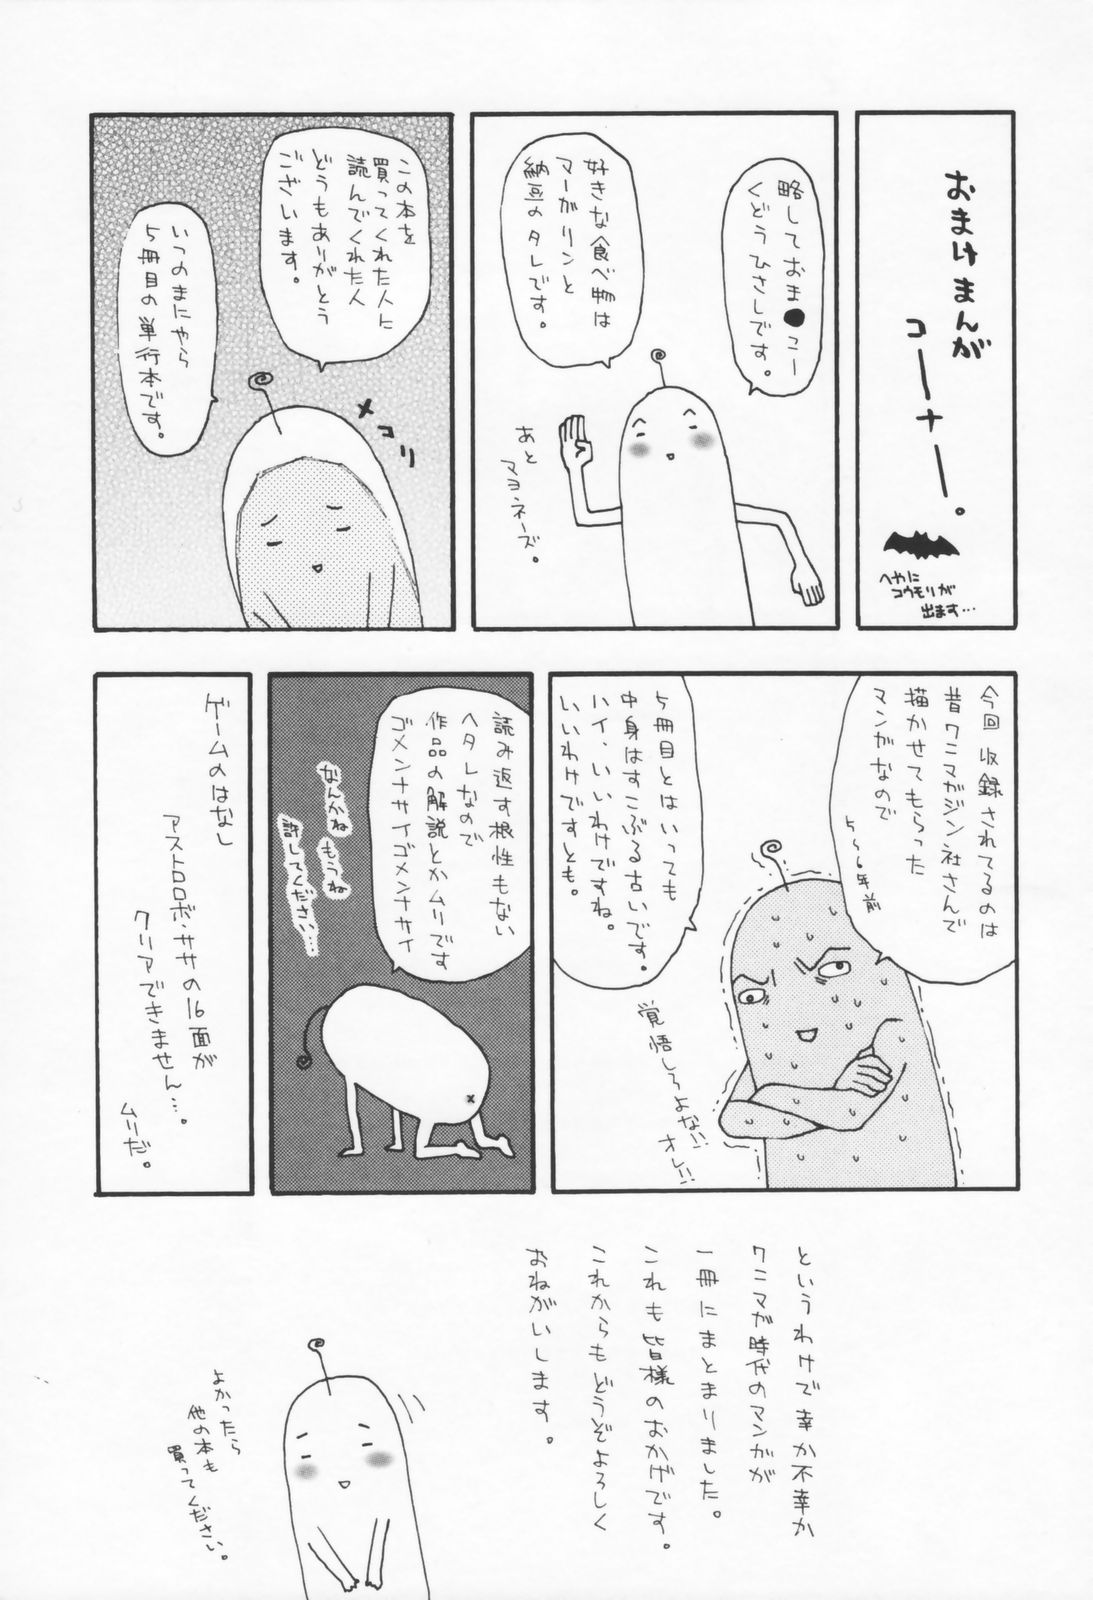 おまけまんが
コーナー。
へやに
コウモリが
出ます…
略しておま●こー
くどうひさしです。
好きな食べ物は
マーガリンと
納豆のタレです。
あと
マヨネーズ。
この本を
買ってくれた人に
読んでくれた人
どうもありがとう
ございます。
いつのまにやら
5冊目の単行本です。
メコリ
今回収録されてるのは
昔ワニマガジン社さんで
描かせてもらった
マンガなので
5～6年前
5冊目とはいっても
中身はすこぶる古いです。
ハイ、いいわけですね。
いいわけですとも。
覚悟しろよな!!
オレ!!
読み返す根性もない
ヘタレなので
作品の解説とかムリです
ゴメンナサイゴメンナサイ
なんかね
もうね
許してください…
ゲームのはなし
アストロロボ・ササの16面が
クリアできません…。
ムリだ。
というわけで幸か不幸か
ワニマガ時代のマンガが
一冊にまとまりました。
これも皆様のおかげです。
これからもどうぞよろしく
おねがいします。
よかったら
他の本も
買ってください。